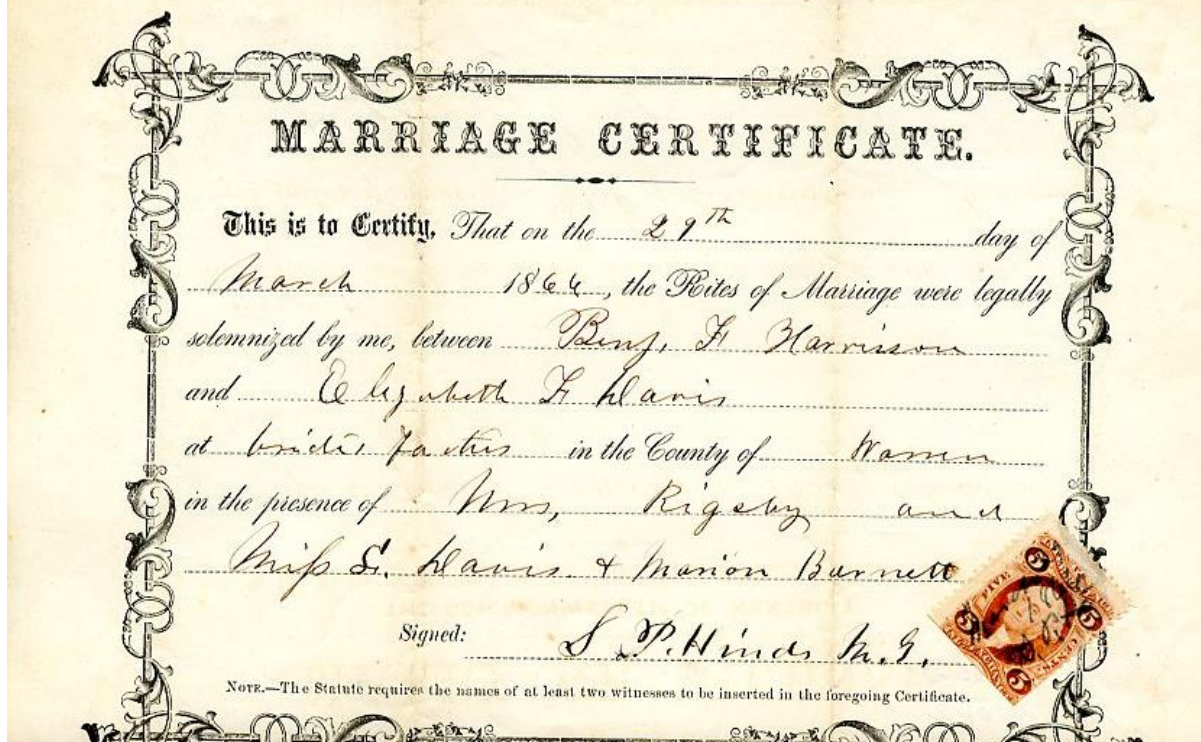 MARRIAGE CERTIFICATE.
This is to Certify, That on the 29th day of
March 1866, the Rites of Marriage were legally
solemnized by me, between Benj. F Harrison
and Elizabeth F Davis
at brides fathers in the County of Warren
in the presence of Mrs, Rigsby and
Miss S. Davis & Marion Barnett
Signed: S. P. Hinds M. G.
NOTE.—The Statute requires the names of at least two witnesses to be inserted in the foregoing Certificate.
5 5
FIVE CENTS
5 5